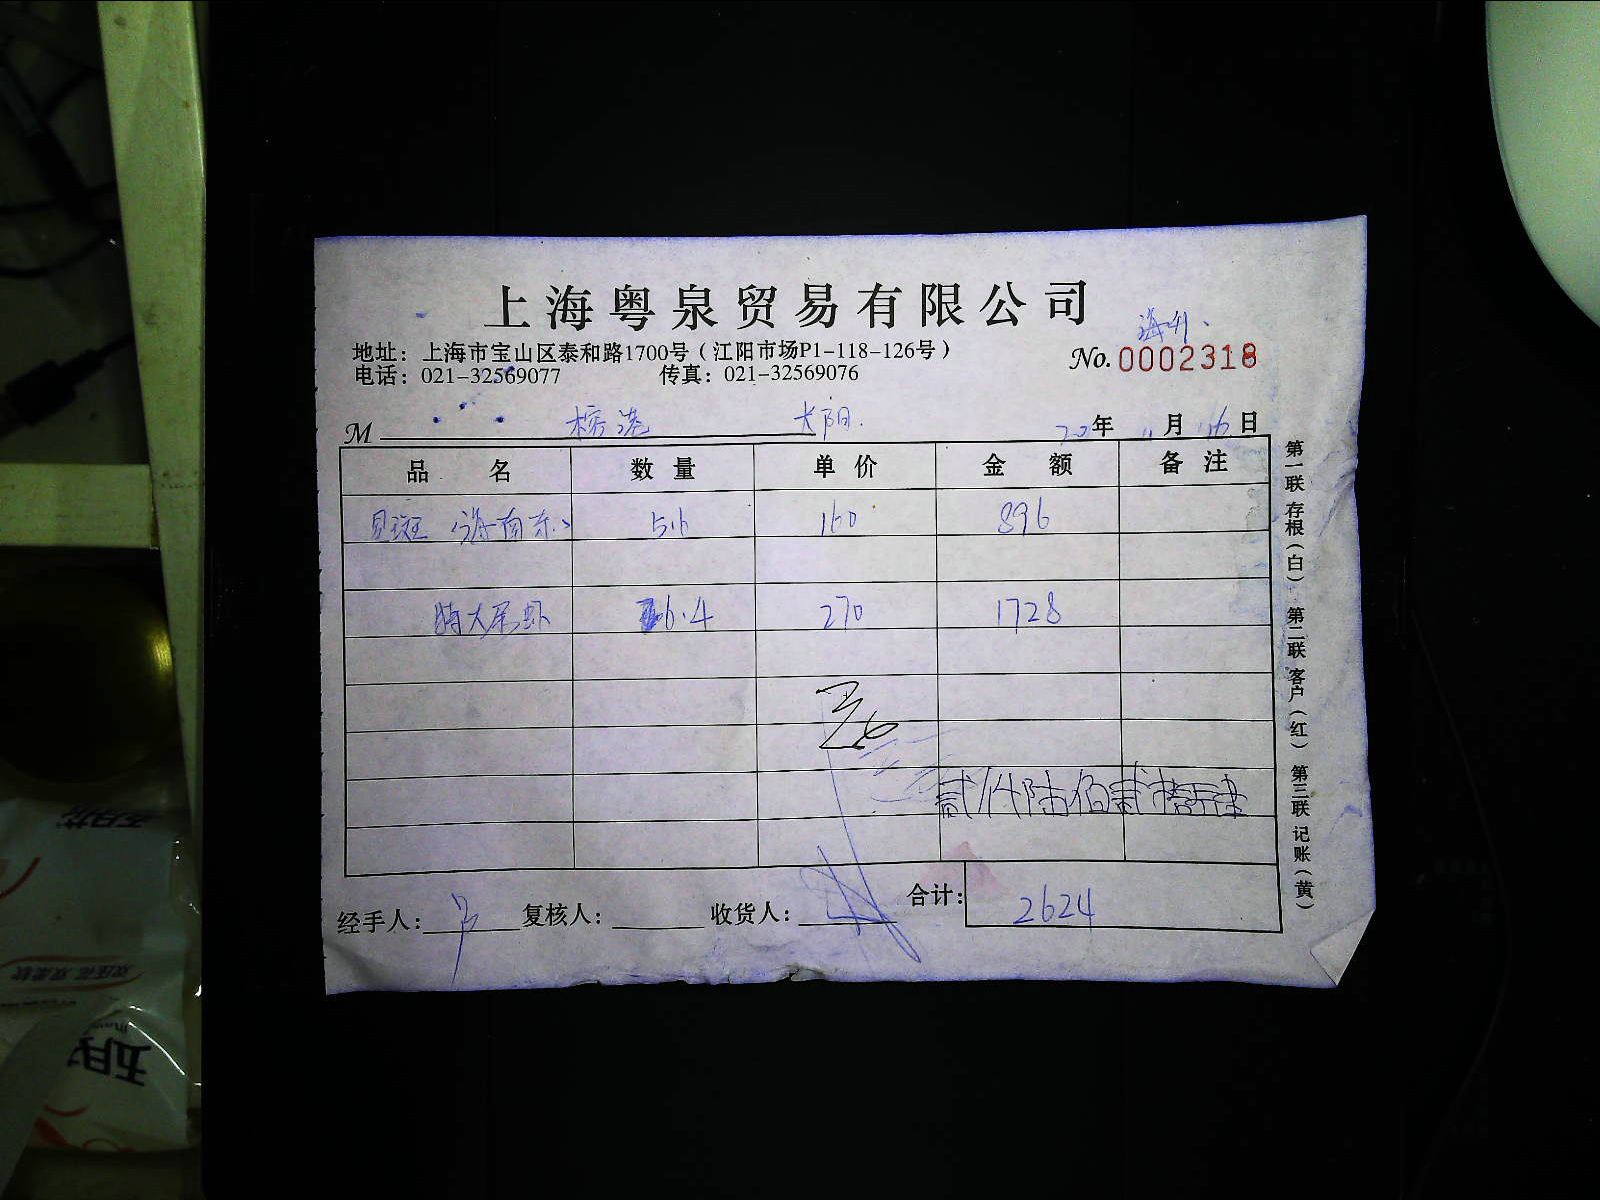 上海粤泉贸易有限公司
地址：上海市宝山区泰和路1700号（江阳市场P1-118-126号）
No.0002318
电话：021-32569077 传真：021-32569076
M 榕港 太阳. 20年 11月 16日
品名 数量 单价 金额 备注
贝斑（海南东） 5.6 160 896
特大尾虾 6.4 270 1728
贰仟陆佰贰拾
合计： 2624
经手人： 复核人： 收货人：
第一联 存根（白） 第二联 客户（红） 第三联 记账（黄）
五月花
双压花 双柔软
五月